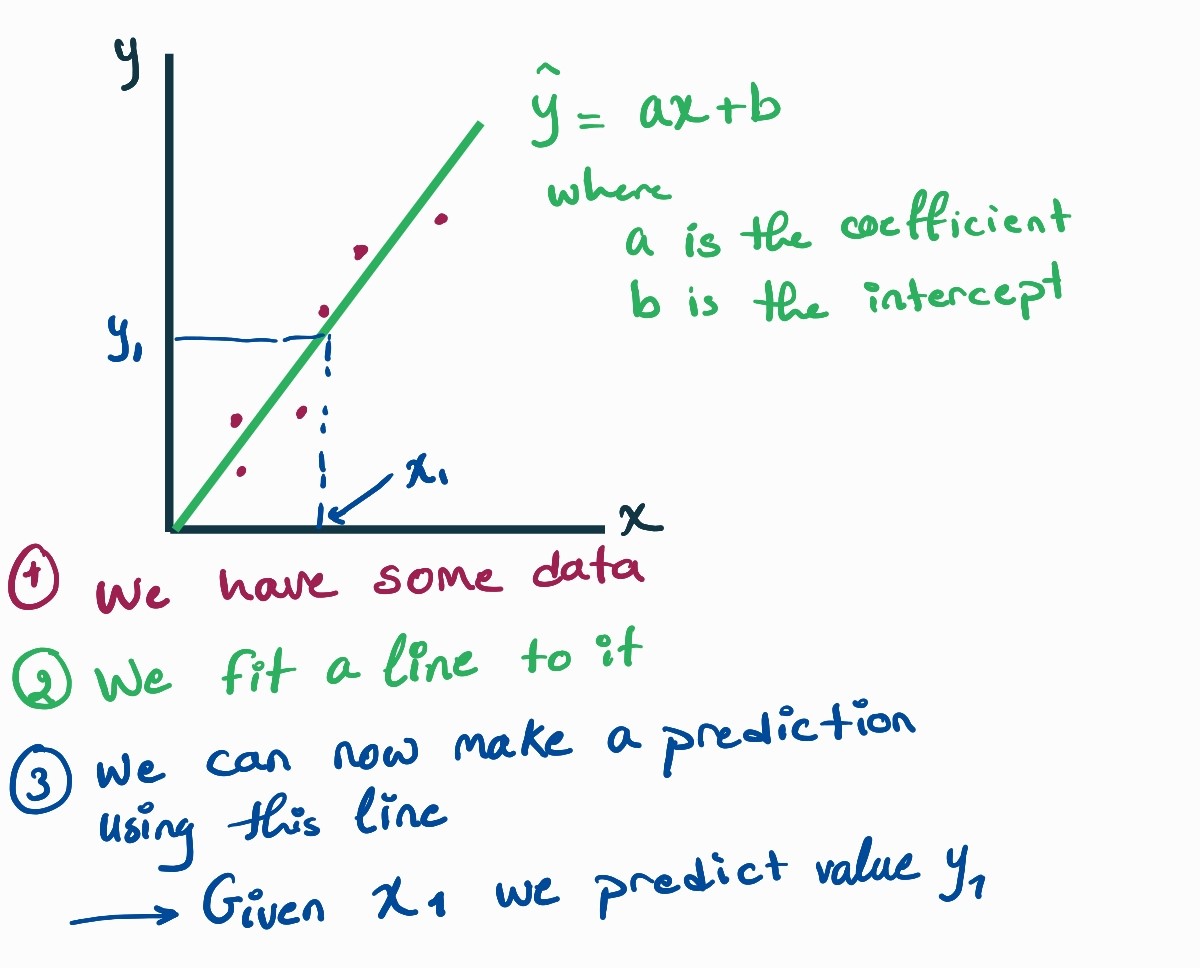 y
ŷ = ax+b
where
a is the coefficient
b is the intercept
y₁
x₁
x
① We have some data
② We fit a line to it
③ We can now make a prediction
using this line
→ Given x₁ we predict value y₁